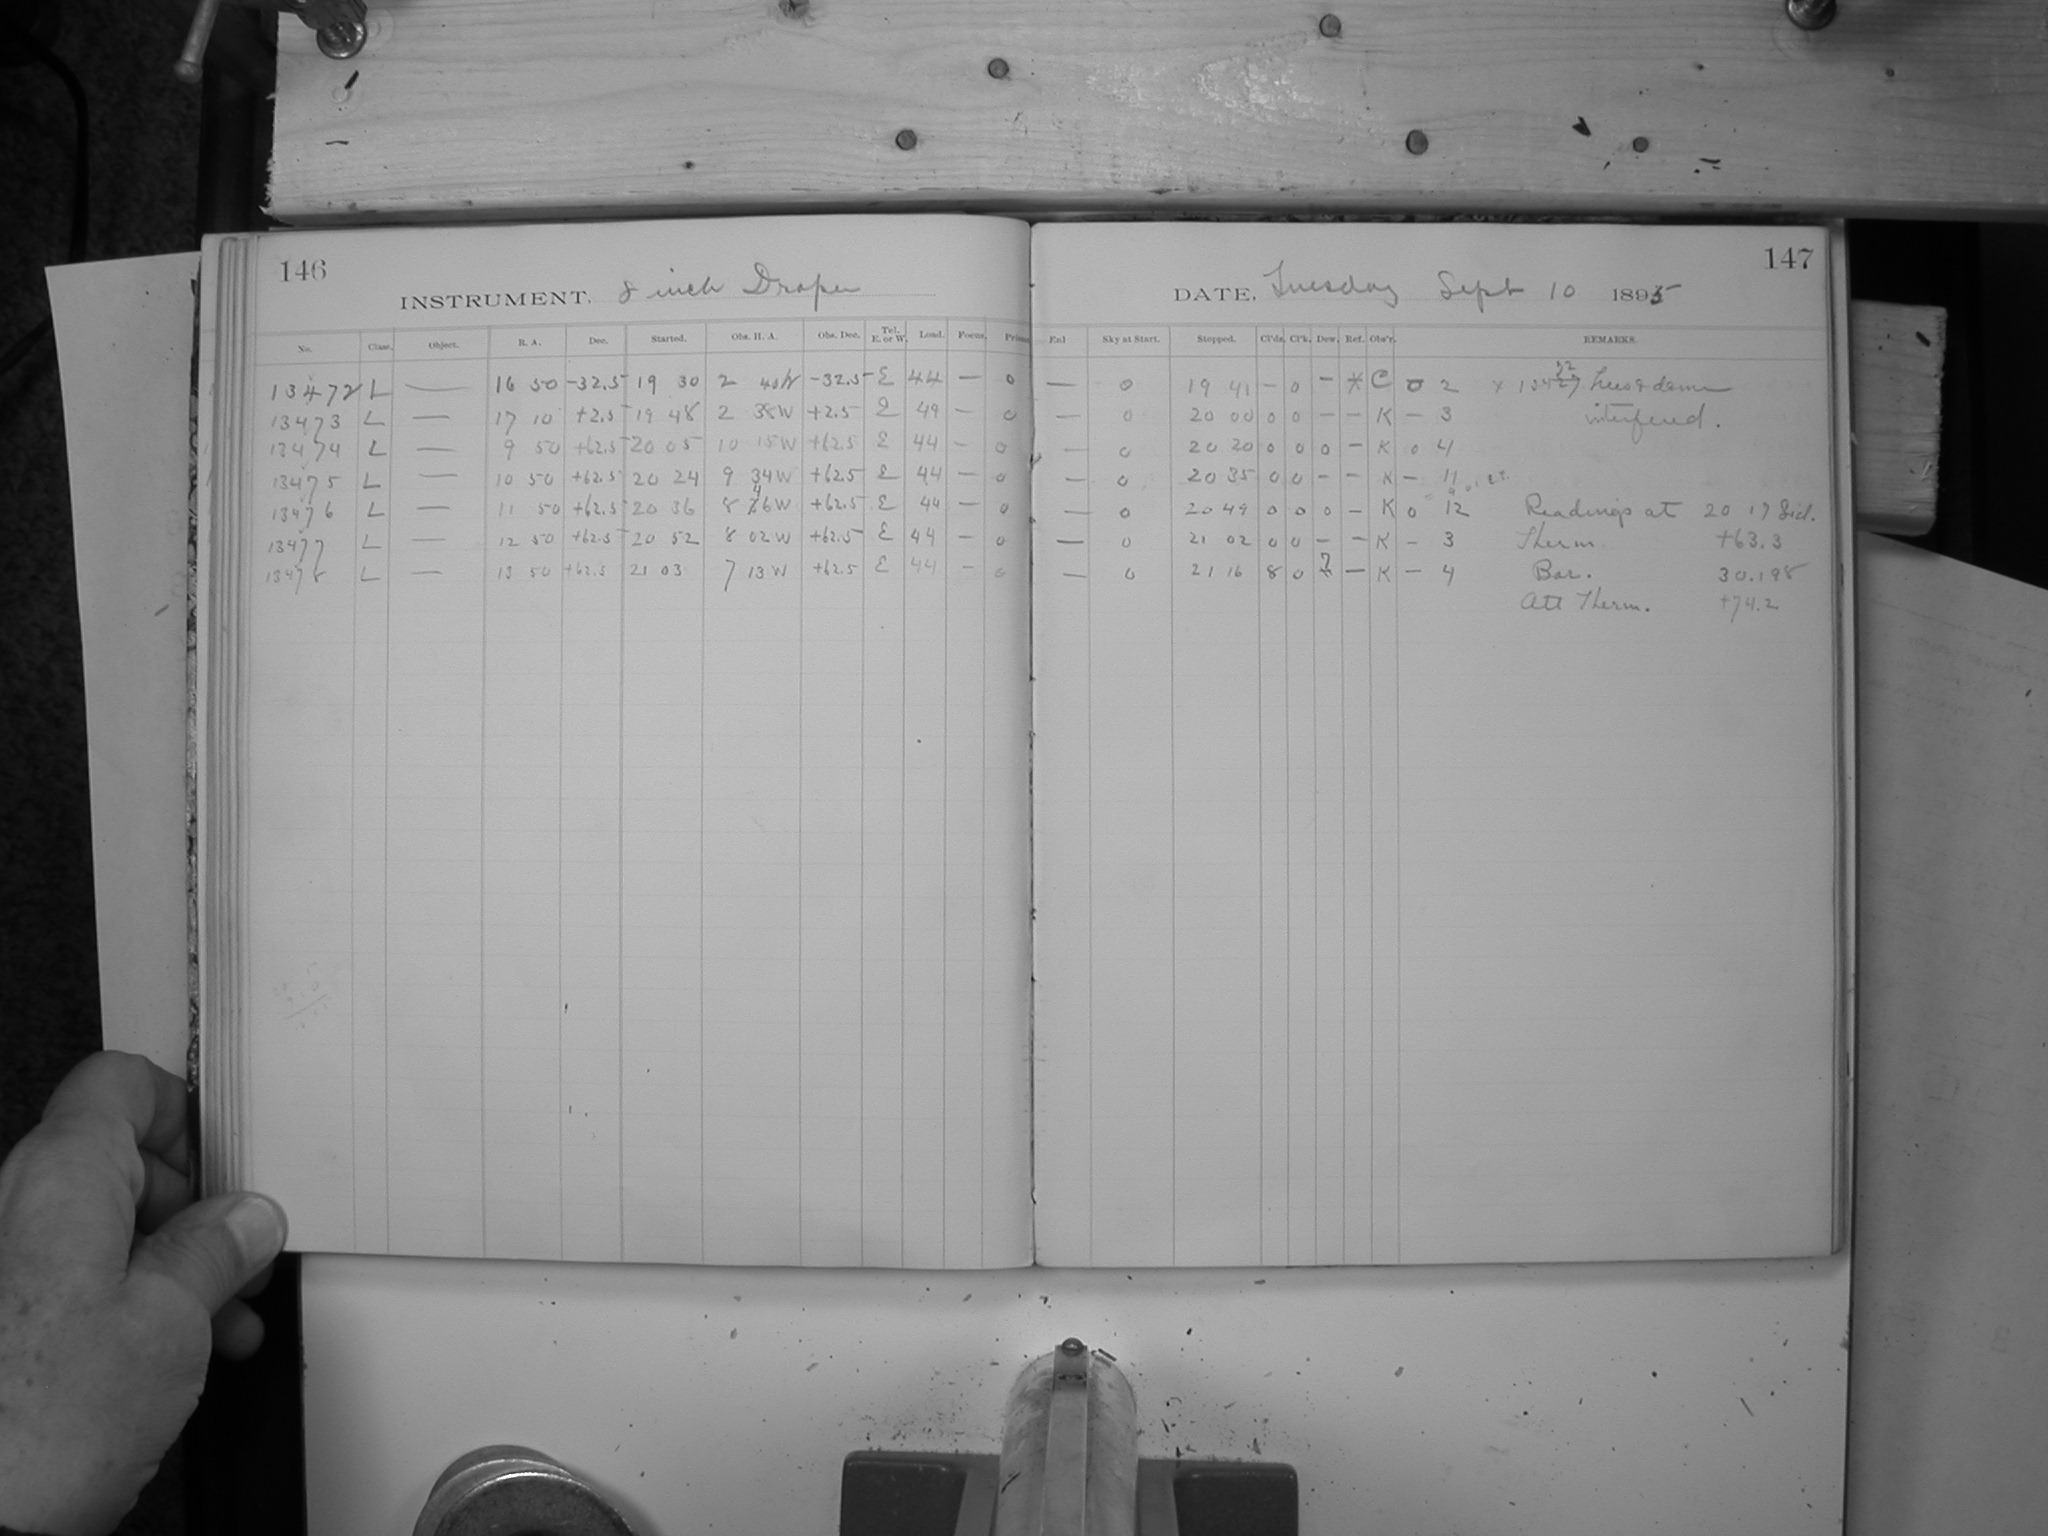 146
INSTRUMENT, 8 inch Draper
No. Class. Object. R. A. Dec. Started. Obs. H. A. Obs. Dec. Tel. E. or W. Load. Focus.
13472 L — 16 50 -32.5 19 30 2 40W -32.5 E 44 — 0
13473 L — 17 10 +2.5 19 48 2 38W +2.5 E 49 — 0
13474 L — 9 50 +62.5 20 05 10 15W +62.5 E 44 — 0
13475 L — 10 50 +62.5 20 24 9 34W +62.5 E 44 — 0
13476 L — 11 50 +62.5 20 36 8 46W +62.5 E 44 — 0
13477 L — 12 50 +62.5 20 52 8 02W +62.5 E 44 — 0
13478 L — 13 50 +62.5 21 03 7 13W +62.5 E 44 — 0
147
DATE, Tuesday Sept 10 1895
Enl Sky at Start. Stopped. Cl'ds. Cl'k. Dew. Ref. Obs'r. REMARKS.
— 0 19 41 — 0 — * C 0 2
interfered.
— 0 20 00 0 0 — — K — 3
— 0 20 20 0 0 0 — K 0 4
— 0 20 35 0 0 — — K — 11
— 0 20 49 0 0 0 — K 0 12 Readings at 20 17 Sid.
— 0 21 02 0 0 — — K — 3 Therm. +63.3
— 0 21 16 8 0 — K — 4 Bar. 30.198
Att Therm. +74.2